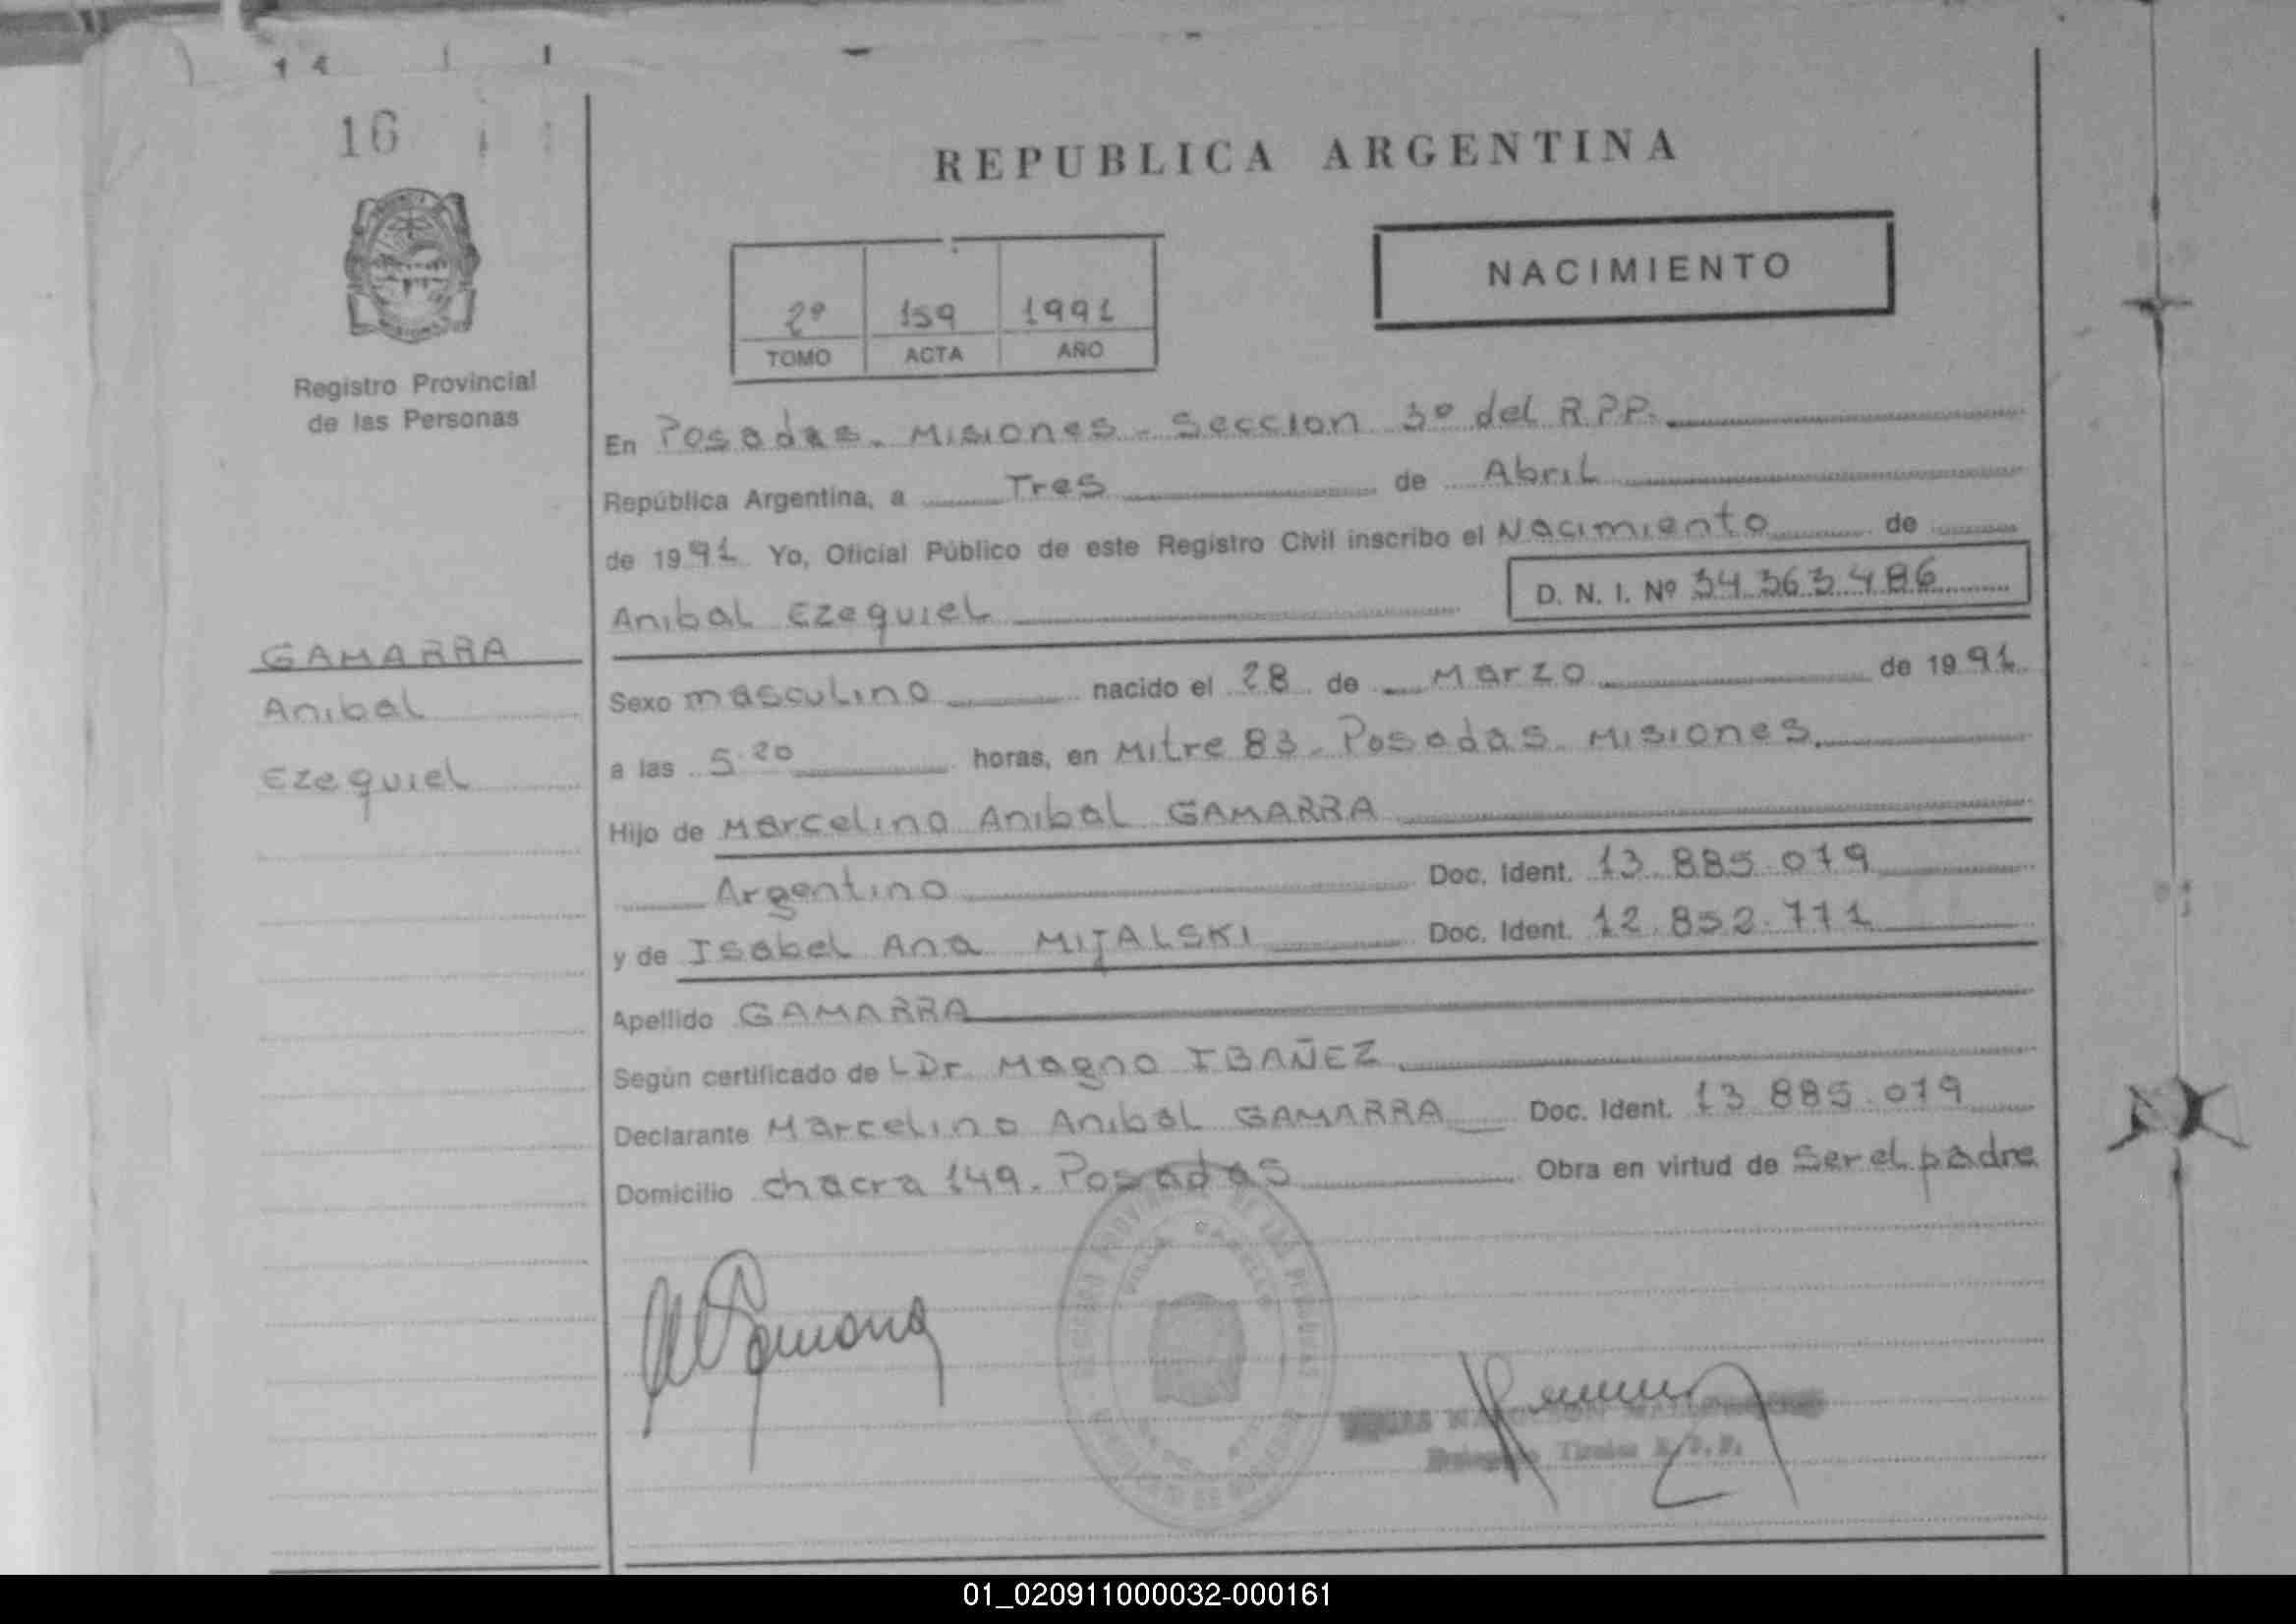 16
REPUBLICA ARGENTINA
NACIMIENTO
2º 159 1991
TOMO ACTA AÑO
Registro Provincial
de las Personas
En Posadas. Misiones - Seccion 3º del R.P.P.
República Argentina, a Tres de Abril
de 1991 Yo, Oficial Público de este Registro Civil inscribo el Nacimiento de
Anibal Ezequiel D. N. I. Nº 34.363.486
GAMARRA
Anibal
Ezequiel
Sexo masculino nacido el 28 de Marzo de 1991
a las 5.20 horas, en Mitre 83 - Posadas. Misiones.
Hijo de Marcelino Anibal GAMARRA
Argentino Doc. Ident. 13.885.079
y de Isabel Ana MIJALSKI Doc. Ident. 12.852.771
Apellido GAMARRA
Según certificado de L Dr. Magno IBAÑEZ
Declarante Marcelino Anibal GAMARRA Doc. Ident. 13 885.079
Domicilio chacra 149. Posadas Obra en virtud de Ser el padre
01_020911000032-000161